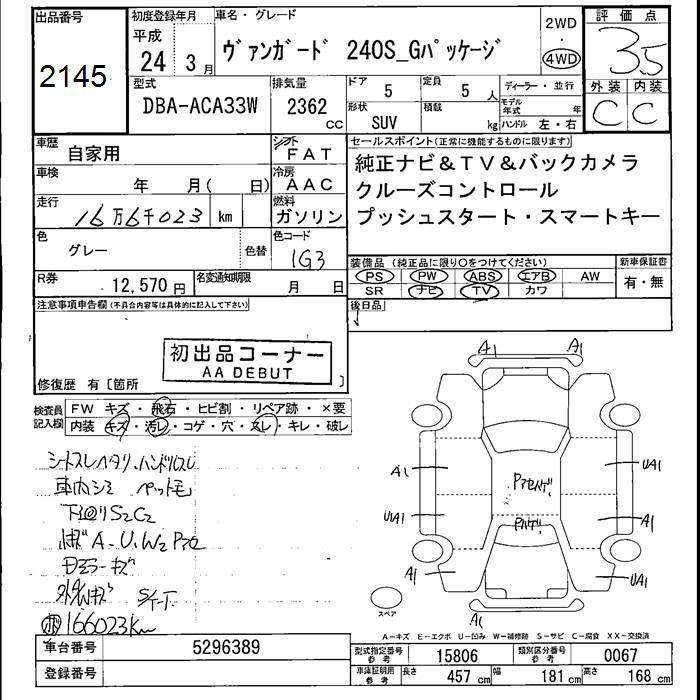 出品番号
2145
初度登録年月
平成
24年 3月
車名・グレード
ヴァンガード 240S_Gパッケージ
2WD
・
4WD
評価点
3.5
外装 内装
C C
型式
DBA-ACA33W
排気量
2362
CC
ドア
5
定員
5 人
形状
SUV
積載
kg
ディーラー・並行
モデル年式 年
ハンドル 左・右
車歴
自家用
シフト
FAT
車検
年 月( 日)
冷房
AAC
走行
16万6千023 km
燃料
ガソリン
色
グレー
色替
色コード
1G3
R券
12,570 円
名変通知期限
月 日
セールスポイント(正常に機能するものに限ります)
純正ナビ&TV&バックカメラ
クルーズコントロール
プッシュスタート・スマートキー
装備品(純正品に限り○をつけてください)
PS PW ABS エアB AW
SR ナビ TV カワ
新車保証書
有・無
後日品
注意事項申告欄(不具合内容等は具体的に記入して下さい)
初出品コーナー
AA DEBUT
修復歴 有〔箇所 〕
検査員記入欄
FW キズ・飛石・ヒビ割・リペア跡・×要
内装 キズ・汚レ・コゲ・穴・スレ・キレ・破レ
シートスレヘタリ、ハンドルスレ
車内シミ ペット毛
下回りS2C2
A-U、W2
ミラーキズ
166023Km
A1 A1
A1 UA1
UA1 A1
A1 UA1
A1
スペア
A-キズ E-エクボ U-凹み W-補修跡 S-サビ C-腐食 XX-交換済
車台番号
5296389
登録番号
型式指定番号 参考
15806
類別区分番号 参考
0067
車庫証明用 参考
長さ 457 cm
幅 181 cm
高さ 168 cm